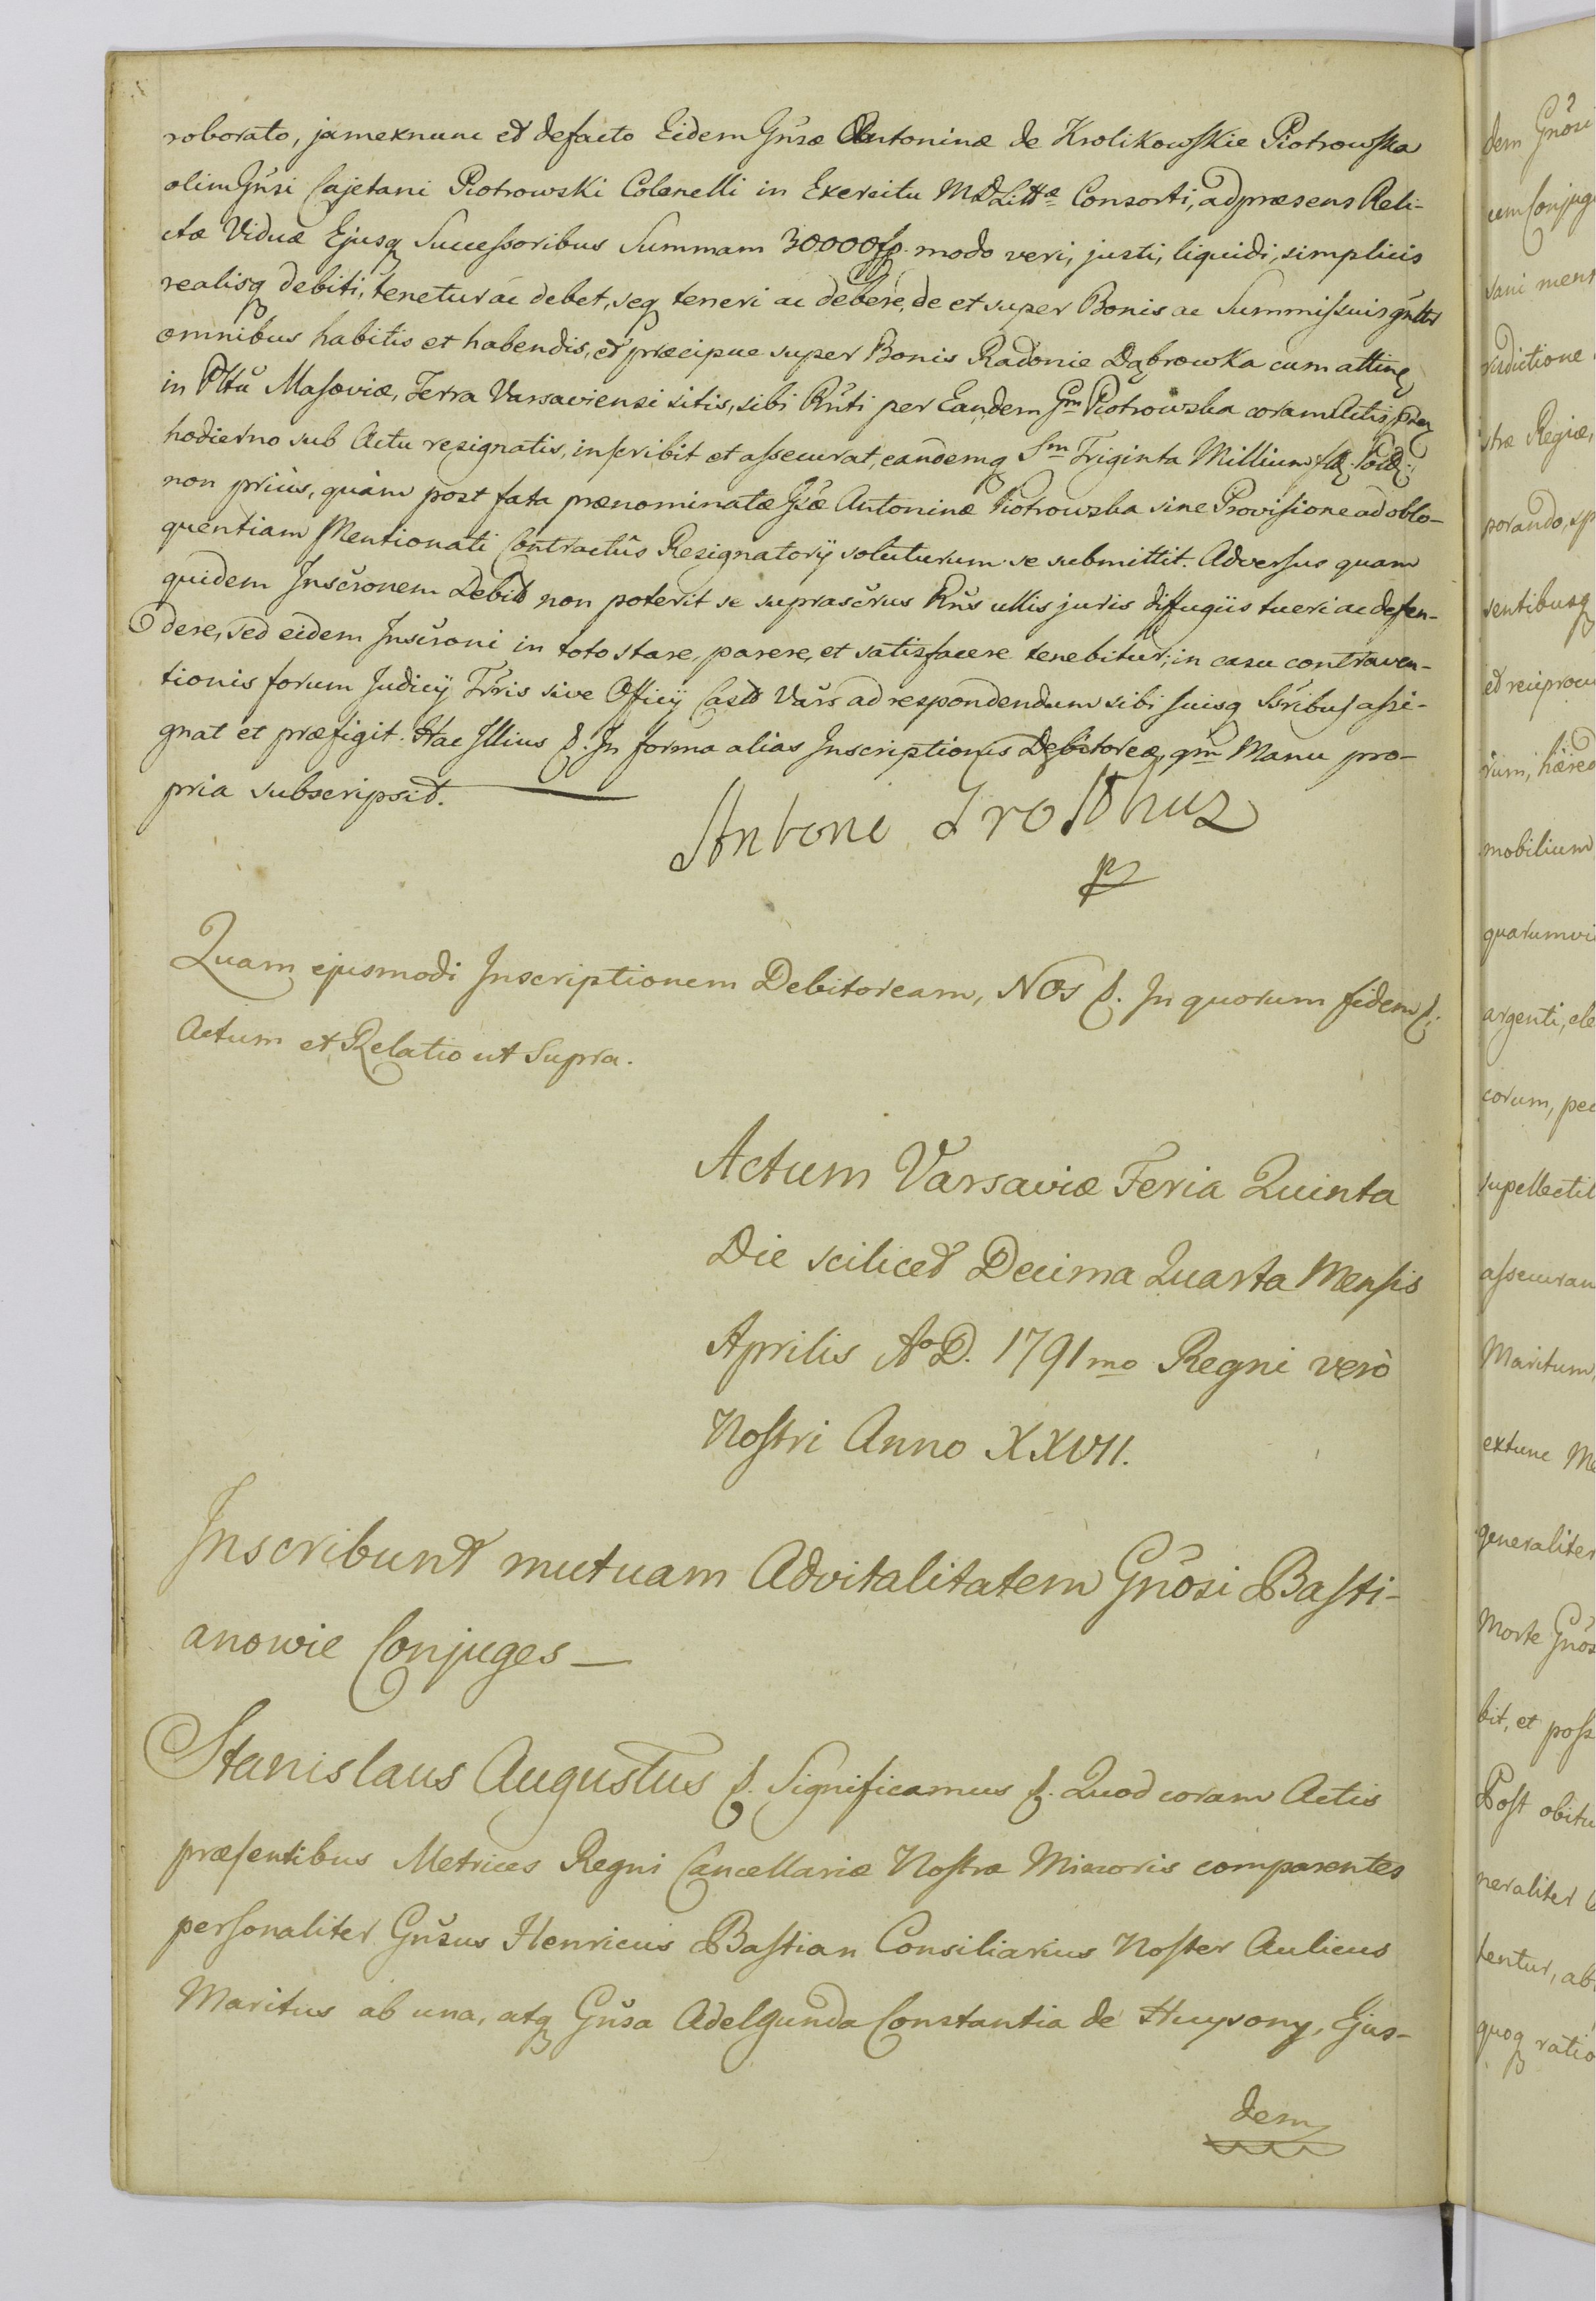 roborato, jamexnunc et defacto Eidem Gnsæ Antoninæ de Krolikowskie Piotrowska
olim Gnsi Cajetani Piotrowski Colonelli in Exercitu M D Littæ Consorti, ad præsens Reli-
ctæ Viduæ Ejusq Successoribus Summam 30000 fp. modo veri, justi, liquidi, simplicis
realisq debiti, tenetur ac debet, seq teneri ac debere, de et super Bonis ac Summis suis gnltr
omnibus habitis et habendis, et præcipue super Bonis Radonie Dąbrowka cum attinen
in Plttu Masoviæ, Terra Varsaviensi sitis, sibi Rnti per Eandem Gm Piotrowska coram Actis prз
hodierno sub Actu resignatis, inscribit et assecurat, eandemq Sm Triginta Millium
non prius, quàm post fata prænominatæ Gsæ Antoninæ Piotrowska sine Provisione ad oblo-
quentiam Mentionati Contractûs Resignatorÿ soluturum se submittit. Adversus quam
quidem Inscronem Debit non poterit se suprascrus Rns ullis juris diffugiis tueri ac defen-
dere, sed eidem Inscroni in toto stare, parere, et satisfacere tenebitur; in casu contraven-
tionis forum Judicÿ Trris sive Officÿ Castr Vars ad respondendum sibi suisq Ssribus assi-
gnat et præfigit. Hac Illius &. In forma alias Inscriptionis Debitoreæ, qm Manu pro-
pria subscripsit.
Antoni Grothuz
Quam ejusmodi Inscriptionem Debitoream, Nos &. In quorum fidem &.
Actum et Relatio ut Supra.
Actum Varsaviæ Feria Quinta
Die scilicet Decima Quarta Mensis
Aprilis Ao D. 1791mo Regni verò
Nostri Anno XXVII.
Inscribunt mutuam Advitalitatem Gnosi Basti-
anowie Conjuges—
Stanislaus Augustus &. Significamus &. Quod coram Actis
præsentibus Metrices Regni Cancellariæ Nostræ Minoris comparentes
personaliter Gnsus Henricus Bastian Consiliarius Noster Aulicus
Maritus ab una, atq Gnsa Adelgunda Constantia de Huyrony, Ejus-
dem
dem Gnose
cum Conjuge
sani ment
risdictione
stræ Regiæ,
porando, sp
sentibusq
et reciproc
rum, hæred
mobilium
quarumvi
argenti, ele
corum, pec
supellectil
assecuran
Maritum,
extunc Me
generaliter
Morte Gnos
bit, et poss
Post obitu
neraliter
tentur, ab
quoq ratio